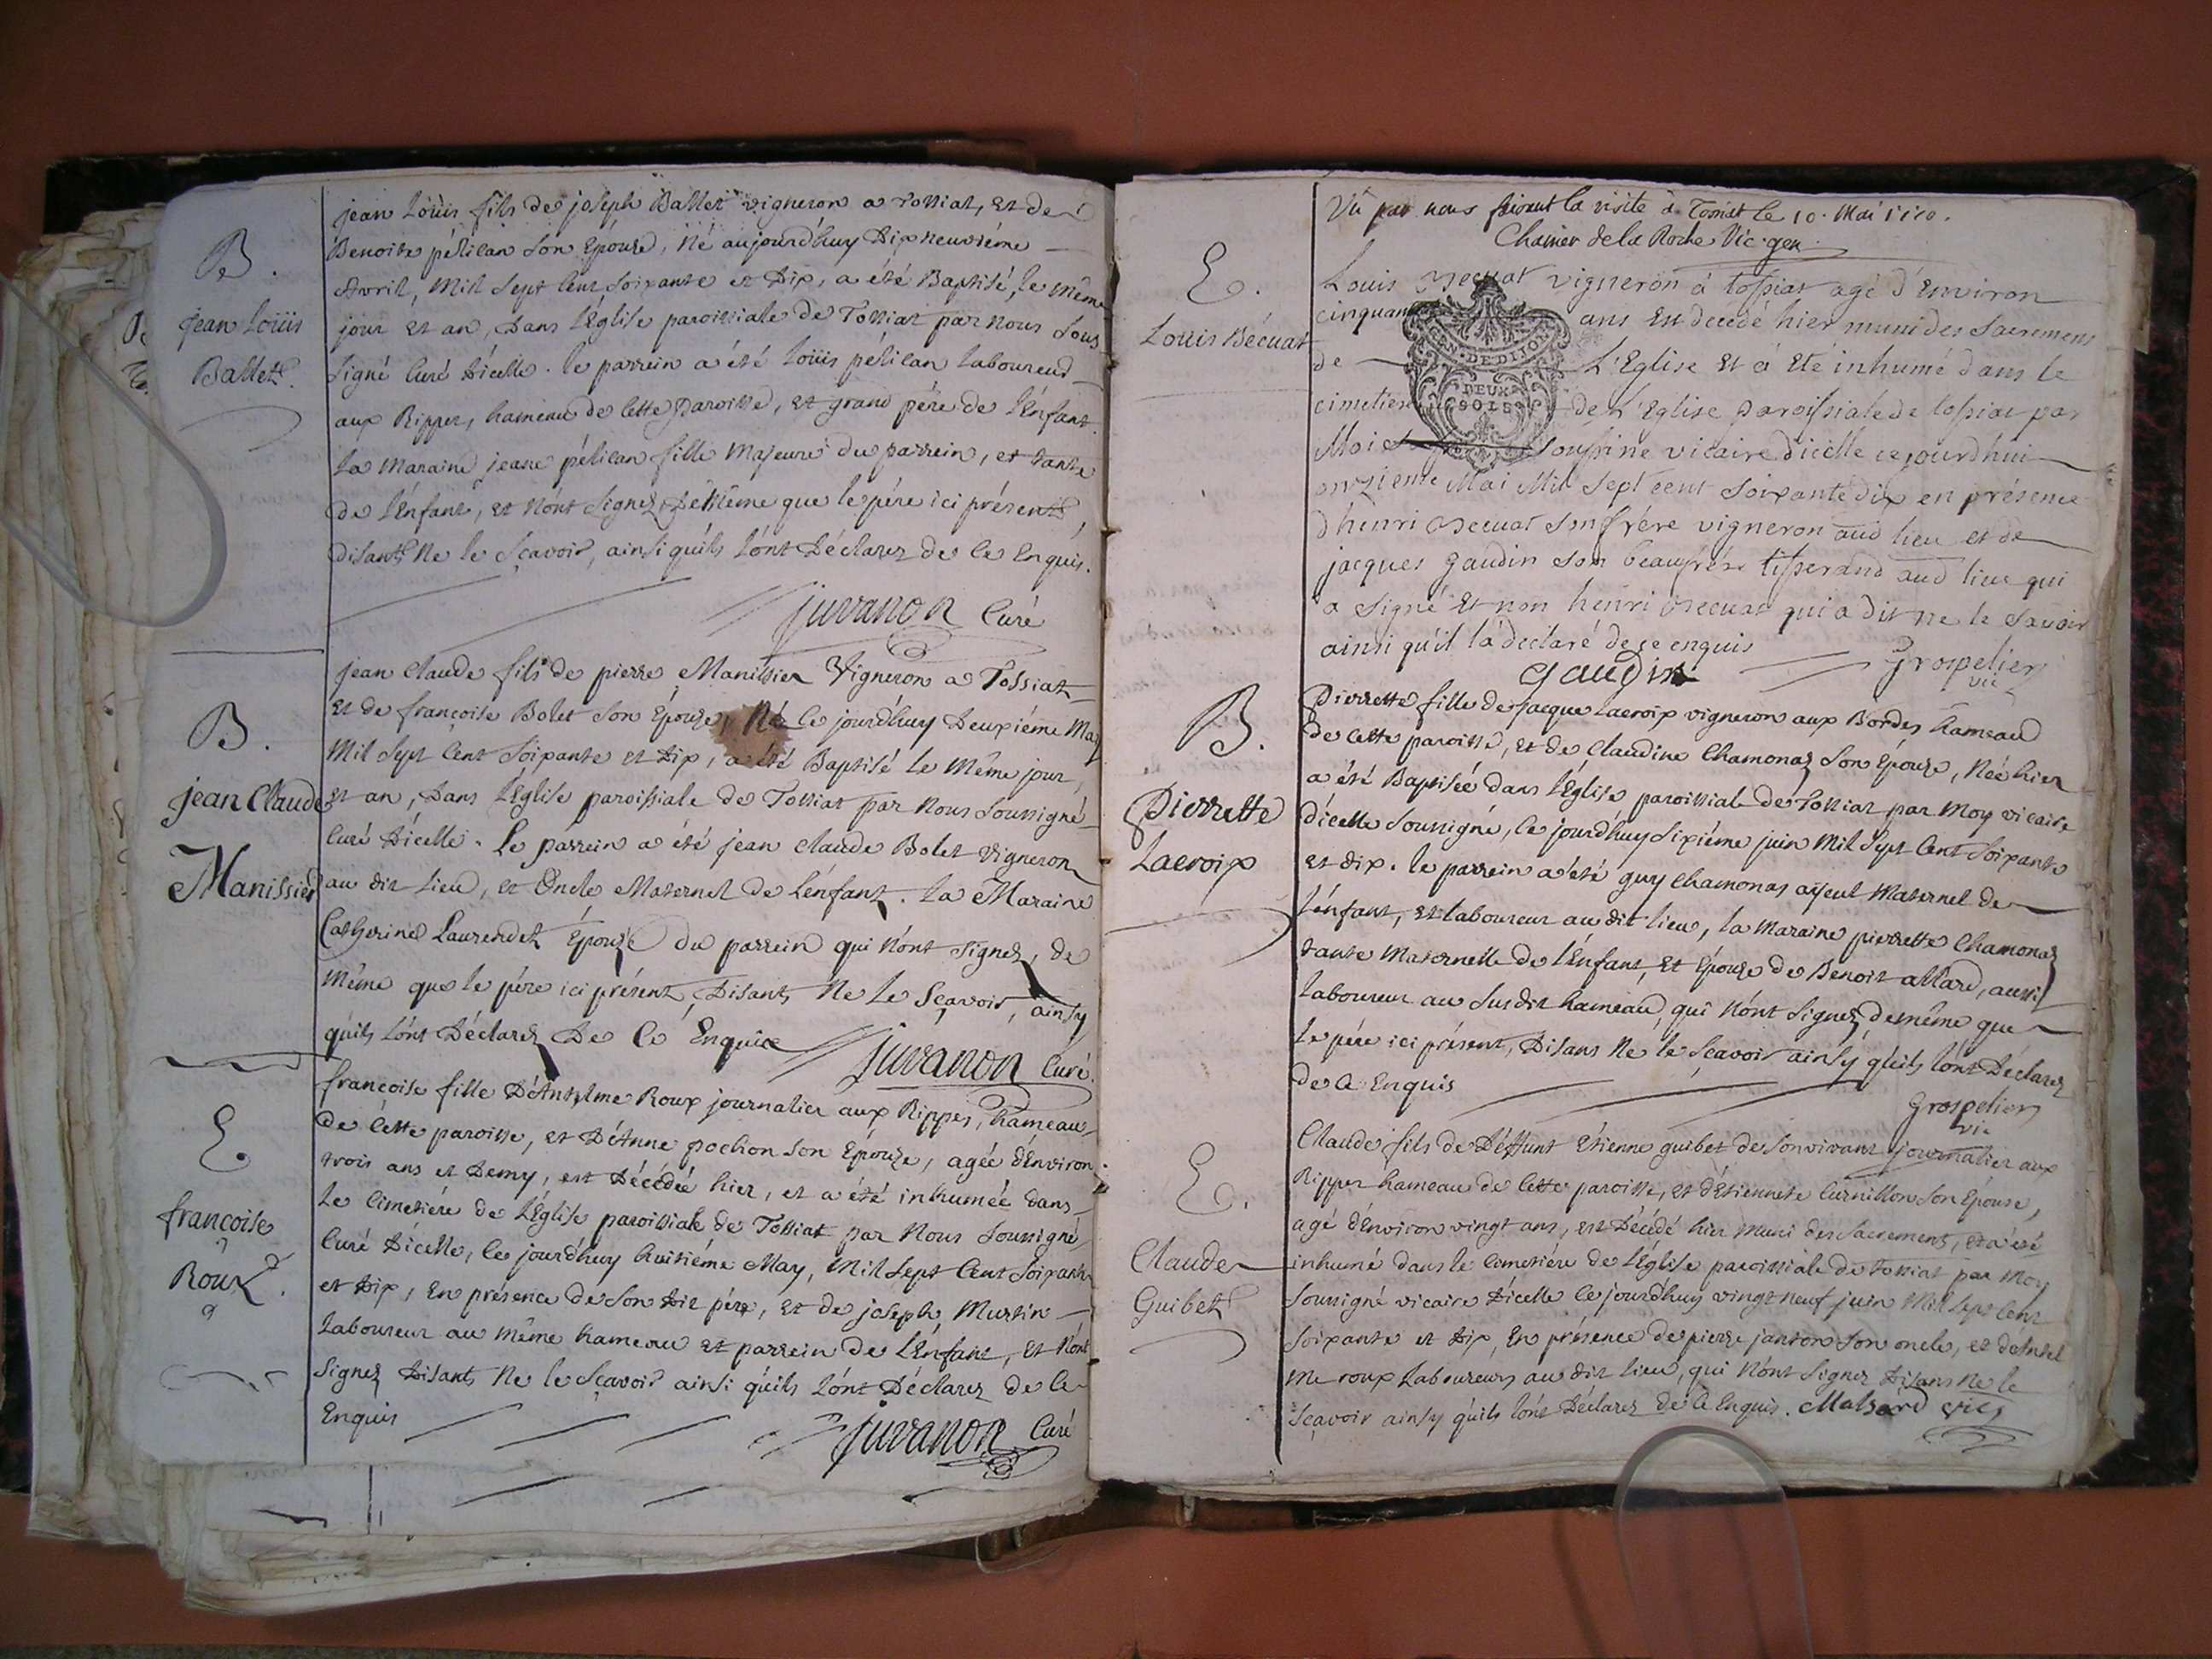 B.
jean Loüis
Ballet.
jean Loüis fils de joseph Ballet vigneron a Tossiat, et de
Benoite pélican son Epouse, Né aujourd'huy Dixneuviéme
Avril, Mil Sept Cent Soixante et Dix, a été Baptisé, le même
jour et an, Dans l'Église paroissiale de Tossiat par nous Sous
signé Curé D'icelle. le parrein a été Loüis pélican laboureur
aux Rippes, hameau de Cette paroisse, et grand pére de l'Enfant.
La Maraine jeane pélican fille Majeure du parrein, et tante
de l'Enfant, et N'ont Signez, De Même que le pére ici présent,
disant Ne le Sçavoir, ainsi qu'ils L'ont Déclarez de Ce Enquis.
juvanon Curé
B.
jean Claude
Manissier
jean Claude fils de pierre Manissier Vigneron a Tossiat
et de françoise Bolet Son Epouse, Né Ce jourd'huy Deuxiéme May
Mil Sept Cent Soixante et Dix, a été Baptisé le Même jour,
et an, Dans l'Église paroissiale de Tossiat par Nous Soussigné
Curé D'icelle. Le parrein a été jean Claude Bolet Vigneron
au dit Lieu, et Oncle Maternel de L'énfant. La Maraine
Catherine Laurendet Epouse du parrein qui N'ont Signez, de
Même que le pére ici présent, Disants Ne Le Sçavoir, ainsy
qu'ils L'ont Déclarez De Ce Enquise
juvanon Curé.
E
françoise
Roux.
françoise fille D'Antelme Roux journalier aux Rippes, hameau
de Cette paroisse, et D'Anne pochon Son Epouse, agée d'Environ
trois ans et Demy, est Décédée hier, et a été inhumée dans
Le Cimetiére de l'Église paroissiale de Tossiat par Nous Soussigné
Curé D'icelle, Ce jourd'huy huitiéme May, Mil Sept Cent Soixante
et Dix, En présence de Son Dit pére, et de joseph Murtin
Laboureur au même hameau et parrein de L'Enfant, et N'ont
Signez Disants Ne le Sçavoir ainsi qu'ils L'ont Déclarez de Ce
Enquis
juvanon Curé
Vû par nous faisant la visite à Tossiat le 10. Mai 1770.
Chamier de la Roche Vic. gen
E.
Loüis Bécuat
Louis Becuat vigneron à tossiat agé d'Environ
cinquan ans Est decedé hier muni des Sacremens
de L'Eglise Et à Eté inhumé dans le
cimetiere de L'Eglise paroissiale de tossiat par
Moi Soussiné vicaire dicelle cejourdhui
onzieme Mai Mil sept cent Soixante dix en présence
d'henri Becuat Son frére vigneron aud lieu et de
jacques gaudin son beaufrére tisserand aud lieu qui
a Signé Et non henri Becuat qui a dit ne le Savoir
ainsi qu'il l'a declaré de ce enquis
GEN. DE DIJON
DEUX
SOLS
gaudin
Grospelier
vic
B.
Pierrette
Lacroix
Pierrette fille de jacque Lacroix vigneron aux Bordes hameau
de Cette paroisse, et de Claudine Chamonaz Son Epouse, Née hier
a été Baptisée dans l'Église paroissiale de Tossiat par Moy vicaire
d'icelle Soussigné, Ce jourd'huy Sixiéme juin Mil Sept Cent Soixante
et dix. le parrein a été guy Chamonas aiyeul Maternel de
l'énfant, et laboureur au dit lieu, la Maraine pierrette Chamonaz
tante Maternelle de l'Enfant, et Epouse de Benoit allard, aussi
laboureur au Susdit hameau, qui N'ont Signez, de même que
Le pére ici présent, Disans Ne le Sçavoir ainsy qu'ils l'ont Déclarez
de Ce Enquis
Grospelier
vic
E.
Claude
Guibet
Claude fils de Déffunt Etienne guibet de Son vivant journalier aux
Rippes hameau de Cette paroisse, et d'Etiennete Curnillon Son Epouse,
agé d'Environ vingt ans, est Décédé hier Muni des Sacremens, et a été
inhumé dans le Cimetiére de L'Église paroissiale de Tossiat par Moy
Soussigné vicaire D'icelle Ce jourd'huy vingt neuf juin Mil Sept Cent
Soixante et Dix, En présence de pierre janton Son oncle, et d'Antel
me roux Laboureurs au dit lieu, qui N'ont Signez Disans Ne le
Sçavoir ainsy qu'ils l'ont Déclarez de Ce Enquis. Malsard vic.